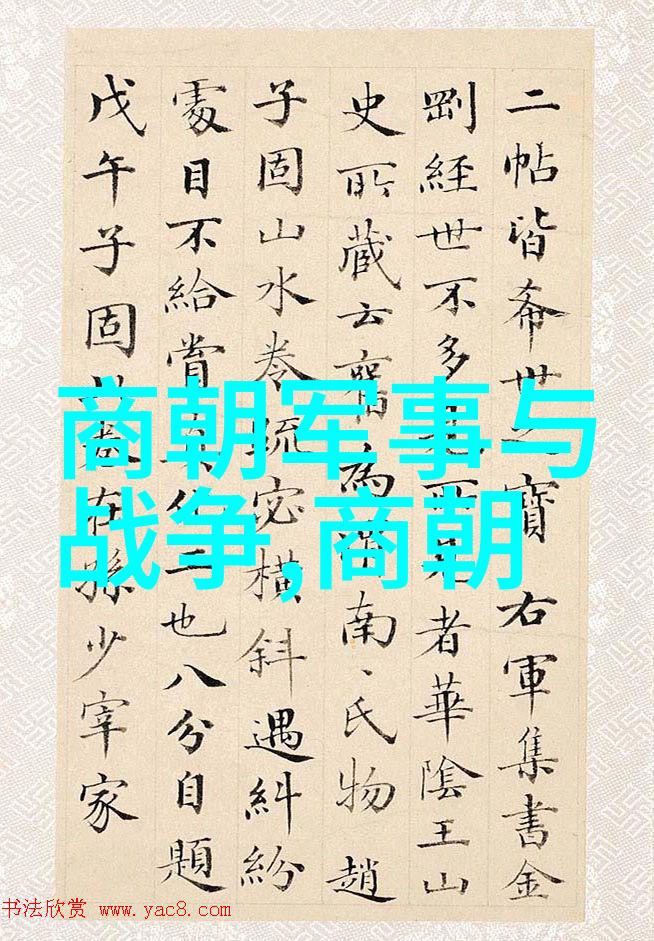 二帖皆希世之寶 右軍集書金
剛經世不多見所見者華陰王山
史所藏云舊為南、氏物趙
子固山水卷疏宓橫斜遇糾紛
處目不給賞二也八分自題
戊午子固卷在孫少宰家
商朝军事与
战争,商朝
书法欣赏 www.yac8.com